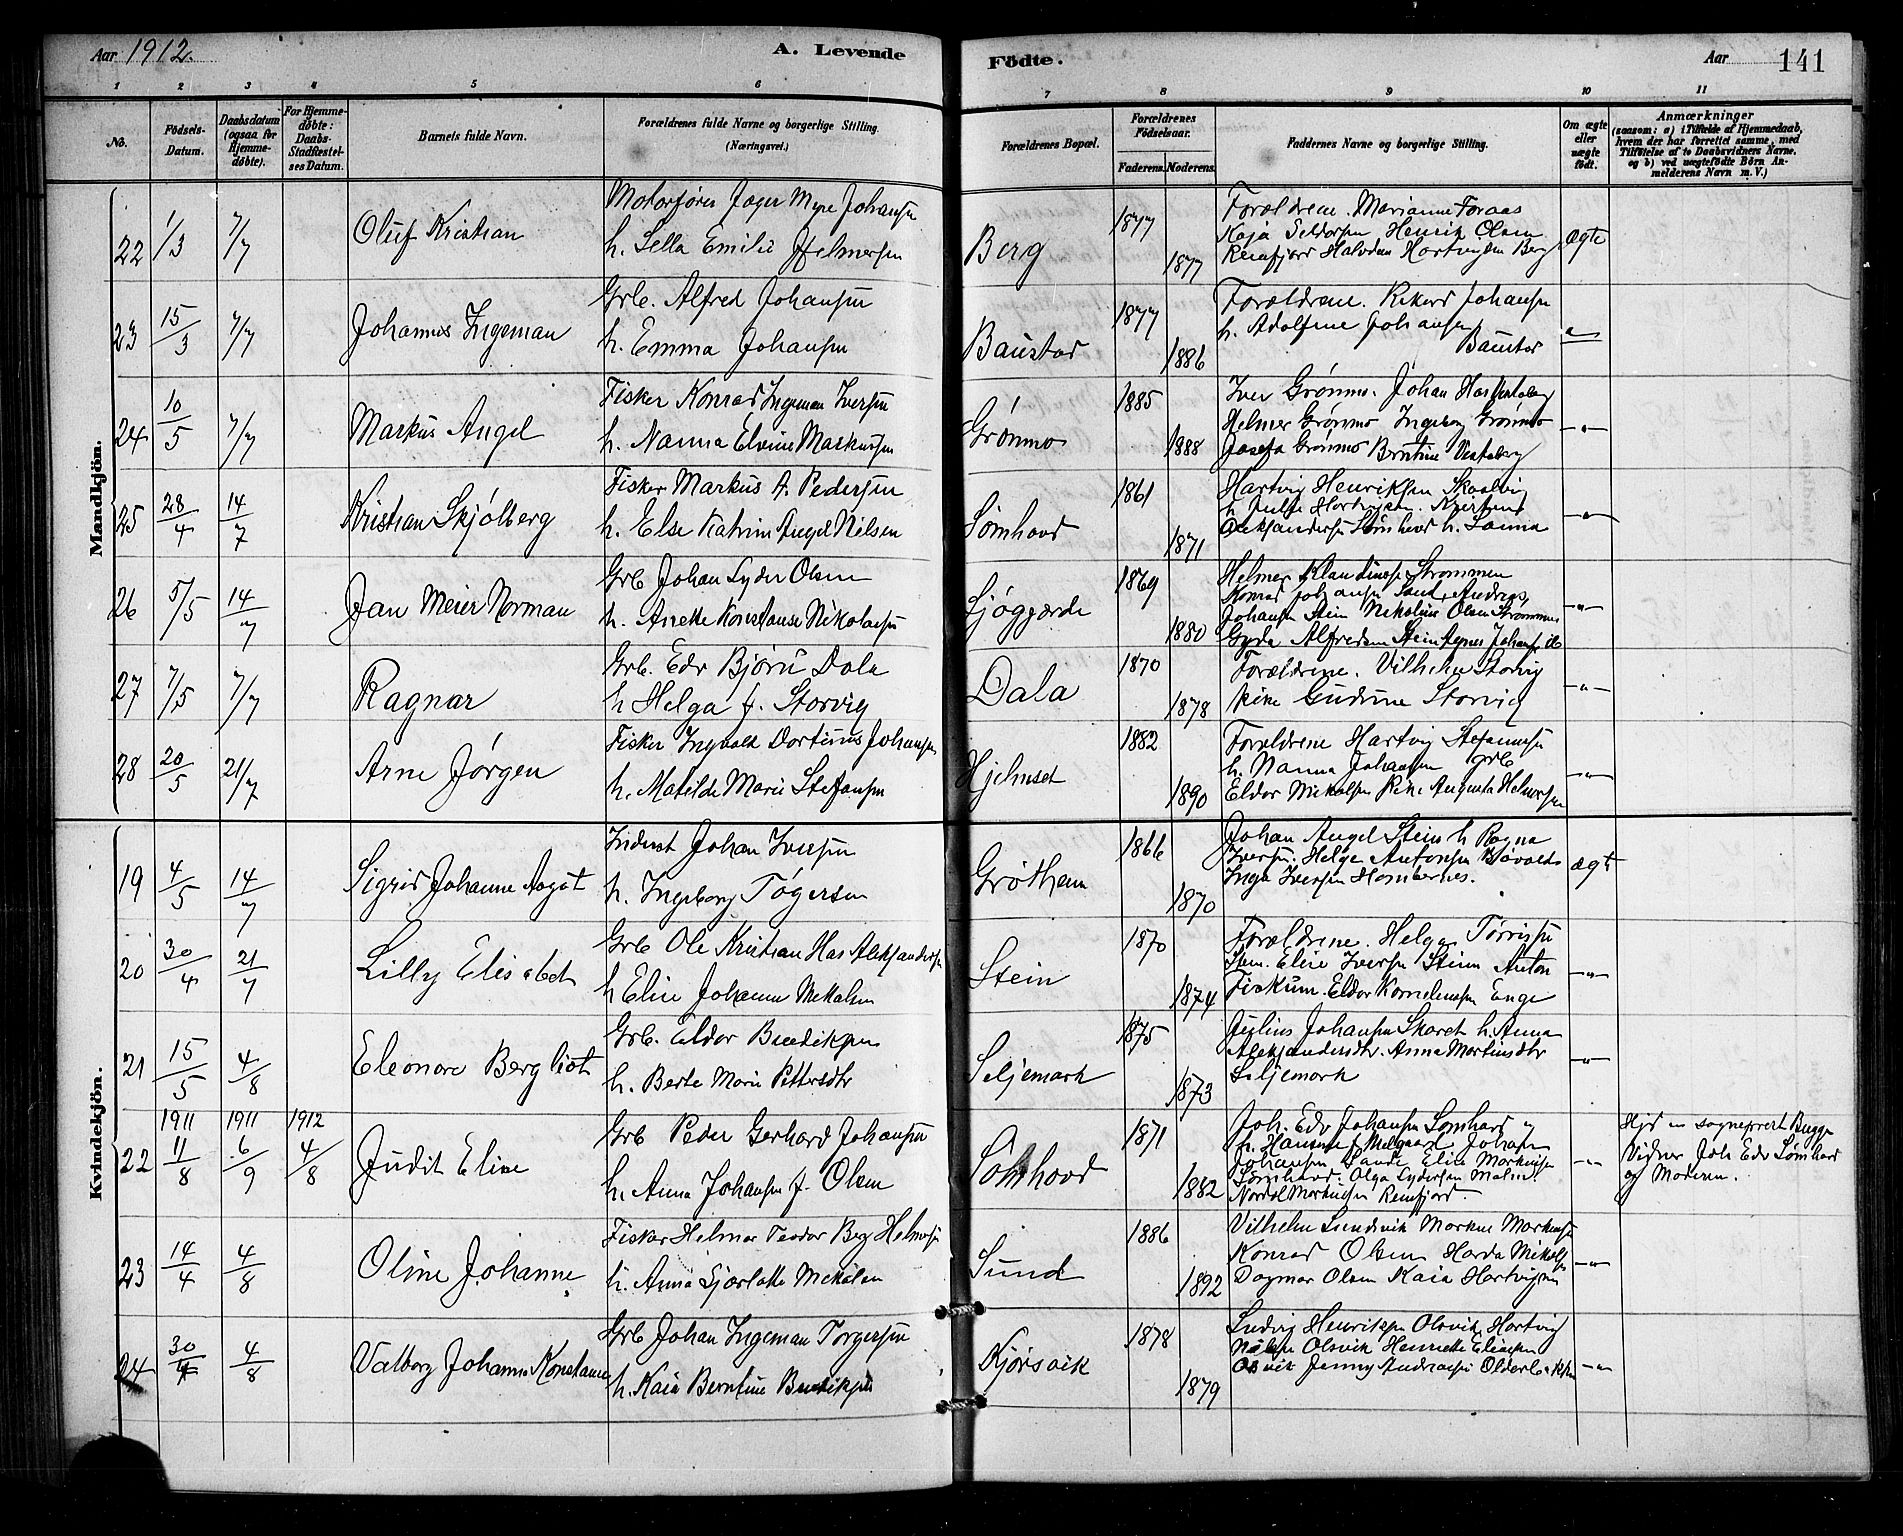 Aar 1912.
A. Levende Födte.
Aar 141
1 2 3 4 5 6 7 8 9 10 11
No.
Födsels-Datum.
Daabsdatum (ogsaa for Hjemmedøbte).
For Hjemmedöbte: Daabs-Stadfæstelses Datum.
Barnets fulde Navn.
Forældrenes fulde Navne og borgerlige Stilling. (Næringsvei.)
Forældrenes Bopæl.
Forældrenes Födselsaar.
Faderens. Moderens.
Faddernes Navne og borgerlige Stilling.
Om ægte eller uægte födt.
Anmærkninger
(saasom: a) i Tilfælde af Hjemmedaab, hvem der har forrettet samme, med Tilföielse af to Daabsvidners Navne, og b) ved uægtefödte Börn Anmelderens Navn m. V.)
Mandkjön.
22 1/3 7/7 Oluf Kristian
Motorfører Jager Myre Johansen
h. Sella Emilie Hjelmersen
Berg 1877 1877
Forældrene. Marianne Foraas
Kaja Henrik Olsen
Halvdan Hartvigsen Berg
ægte
23 15/3 7/7 Johannes Ingeman
Grb. Alfred Johansen
h. Emma Johansen
Baustad 1877 1886
Forældrene. Rikard Johansen
h. Adolfine Johansen
Baustad
24 10/5 7/7 Markus Angel
Fisker Konrad Ingeman Iversen
h. Nanna Elvine Markussen
Grønmo 1885 1888
Iver Grønmo. Johan
Helmer Grønmo Ingeborg Grønmo
Josefa Grønmo Berntine
-"-
25 28/4 14/7 Kristian Skjølberg
Fisker Markus A. Pedersen
h. Else Katrine Angel Nilsen
Sømhovd 1861 1871
Hartvig Henriksen Skaalvig
Aleksandersen Sømhovd h. Lorina
-"-
26 5/5 14/7 Jan Meier Norman
Grb Johan Lyder Olsen
h. Anette Konstanse Nikolaisen
Sjøgjærde 1869 1880
Helmer Klaudiussen Strømmen
Konrad Johansen Sand, Andreas
Johansen Stein Nikoline Olsen Strømmen
Gyda Alfredsen Stein Agnes Johansen ib
-"-
27 7/5 7/7 Ragnar
Grb. Edv Bjørn Dala
h Helga f. Storvig
Dala 1870 1878
Forældrene. Vilhelm Storvig
Pike Gudrune Storvig
-"-
28 20/5 21/7 Arne Jørgen
Fisker Ingvald Dortinus Johansen
h. Matilde Marie Stefansen
Hjelmset 1882 1890
Forældrene Hartvig Stefansen
h. Nanna Johansen Grb
Eldor Mikalsen Pike Augusta Helmersen
-"-
Kvindekjön.
19 4/5 14/7 Sigrid Johanne Aagot
Inderst Johan Iversen
h. Ingeborg Tøgersen
Grøthem 1866 1870
Johan Angel Stein h Ragna
Iversen. Helge Antonsen
Inga Iversen Hombornes.
ægt
20 30/4 21/7 Lilly Elisabet
Grb Ole Kristian Has Aleksandersen
h Eline Johanne Mikalsen
Stein 1870 1874
Forældrene. Helge Tørrissen
Stein. Elise Iversen Stein Anton
Fiskum. Eldor Kornelius. Enge
-"-
21 15/5 4/8 Eleonore Bergliot
Grb. Eldor Benedikten
h. Berte Marie Pettersdtr
Seljemark 1875 1873
Julius Johansen Skaret h. Anna
Aleksandersdtr. Anna Martinsdtr
Seljemark
-"-
1911 1911 1912
22 11/8 6/9 4/8 Judit Eline
Grb Peder Gerhard Johansen
h. Anna Johansen f. Olsen
Sømhovd 1871 1882
Joh. Edv Johansen Sømhovd og
h. Hansine f. Melgaard Johan
Johansen Sande Elise Markussen
Sømhovd. Olga Lydersen Malm
-"-
Hjd. av sogneprest Bugge
Vidner Joh Edv Sømhovd
og Moderen.
23 14/4 4/8 Oline Johanne
Fisker Helmer Teodor Berg Helmersen
h. Anna Sjarlotte Mikalsen
Sund 1886 1892
Vilhelm Sundsvik Markus Markussen
Konrad Olsen Harda Mikalsen
Dagmar Olsen Kaia Hartvigsen
-"-
24 30/4 4/8 Valborg Johanne Konstanse
Grb Johan Ingeman Torgersen
h. Kaia Berntine Benedikten
Kjørsvik 1878 1879
Ludvig Henriksen Olsvik Hartvig
Nilsen Olsvik Henriette Eliassen
Olsvik Jenny Andreassen
-"-